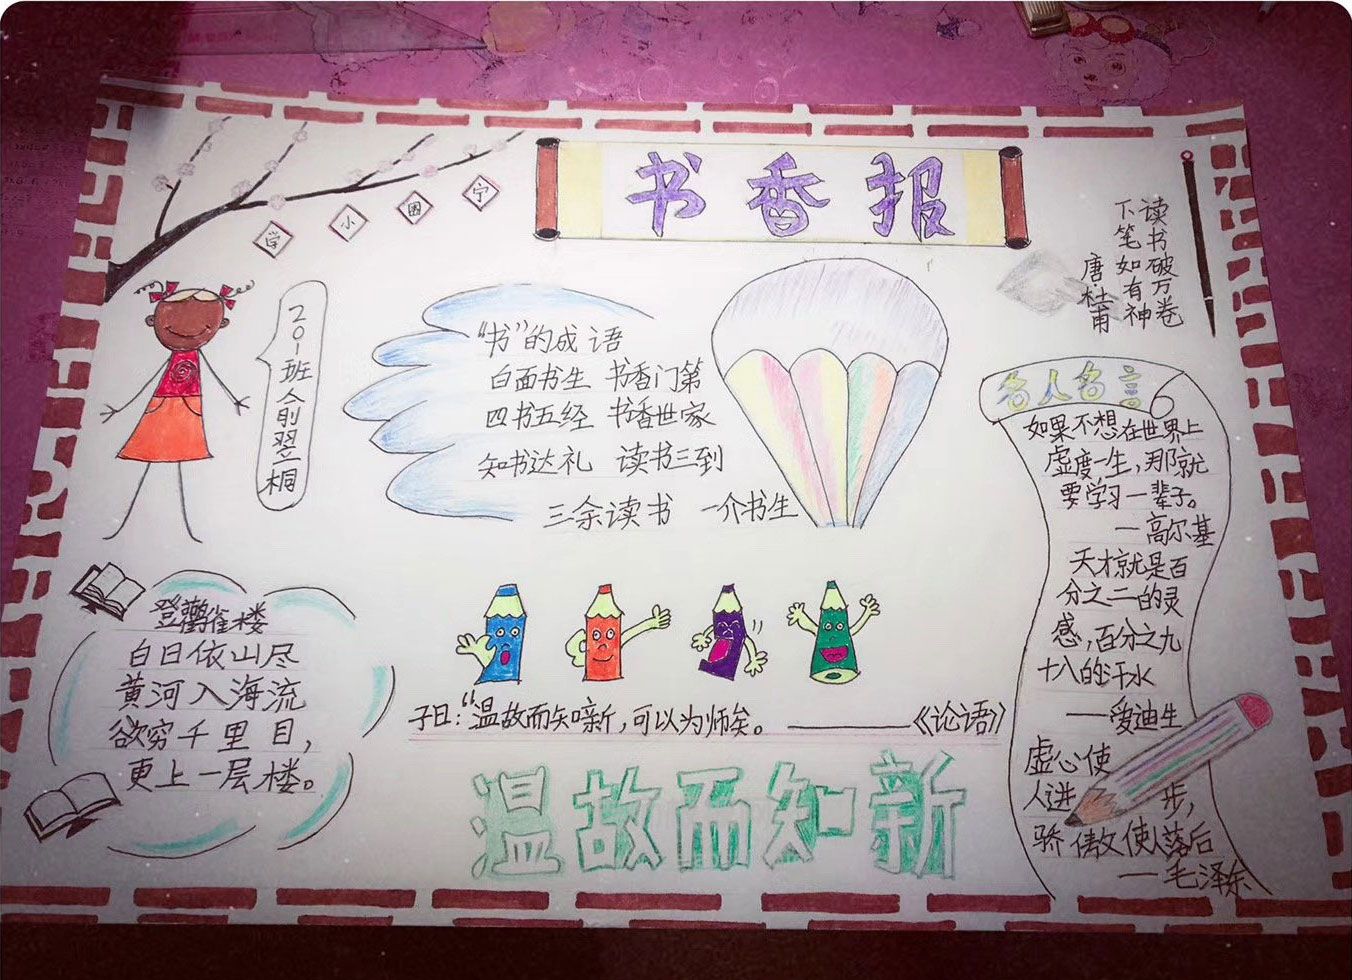 书香报
宁国小学
201班俞翌桐
读书破万卷
下笔如有神
唐杜甫
“书”的成语
白面书生 书香门第
四书五经 书香世家
知书达礼 读书三到
三余读书 一介书生
名人名言
如果不想在世界上
虚度一生，那就
要学习一辈子。
—高尔基
天才就是百
分之二的灵
感，百分之九
十八的汗水
——爱迪生
虚心使
人进步，
骄傲使人落后
—毛泽东
登鹳雀楼
白日依山尽
黄河入海流
欲穷千里目，
更上一层楼。
子曰：“温故而知新，可以为师矣。——《论语》
温故而知新